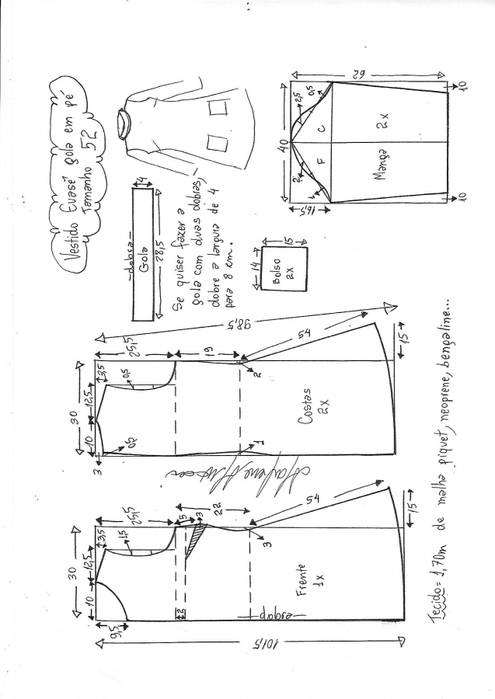 Vestido Evasê gola em pé
Tamanho 52
—dobra—
Gola
4
28,5
Se quiser fazer a
gola com duas dobras,
dobre a largura de 4
para 8 cm.
14
15
Bolso
2x
62
10
40
2,5
0,5
C
2x
F
Manga
2
1
16,5
10
98,5
25,5
19
54
15
3,5
0,5
12,5
30
10
2
Costas
2x
0,5
1
3
25,5
5
3
22
54
15
3,5
1,5
12,5
30
10
3
Frente
1x
2
—dobra—
9,5
101,5
Tecido= 1,70m de malha piquet, neoprene, bengaline...